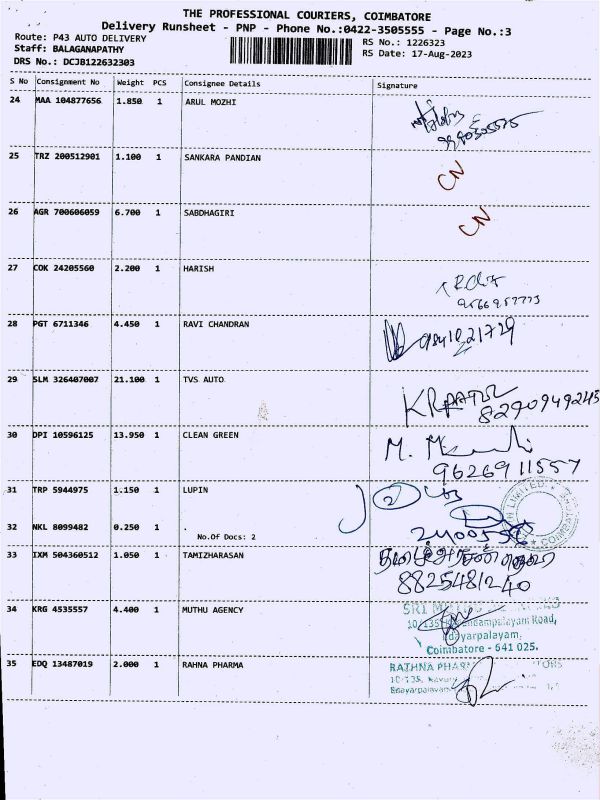 THE PROFESSIONAL COURIERS, COIMBATORE
Delivery Runsheet - PNP - Phone No.:0422-3505555 - Page No.:3
Route: P43 AUTO DELIVERY
RS No.: 1226323
Staff: BALAGANAPATHY
RS Date: 17-Aug-2023
DRS No.: DCJB122632303
S No Consignment No Weight PCS Consignee Details Signature
24 MAA 104877656 1.850 1 ARUL MOZHI
25 TRZ 200512901 1.100 1 SANKARA PANDIAN CN
26 AGR 700606059 6.700 1 SABDHAGIRI CN
27 COK 24205560 2.200 1 HARISH
9566957773
28 PGT 6711346 4.450 1 RAVI CHANDRAN 9841021729
29 SLM 326407007 21.100 1 TVS AUTO
8290949245
30 DPI 10596125 13.950 1 CLEAN GREEN M.
9626911557
31 TRP 5944975 1.150 1 LUPIN
32 NKL 8099482 0.250 1 .
No.Of Docs: 2
33 IXM 504360512 1.050 1 TAMIZHARASAN
8825481240
34 KRG 4535557 4.400 1 MUTHU AGENCY SRI
Road,
Coimbatore - 641 025.
35 EDQ 13487019 2.000 1 RAHNA PHARMA RATHNA